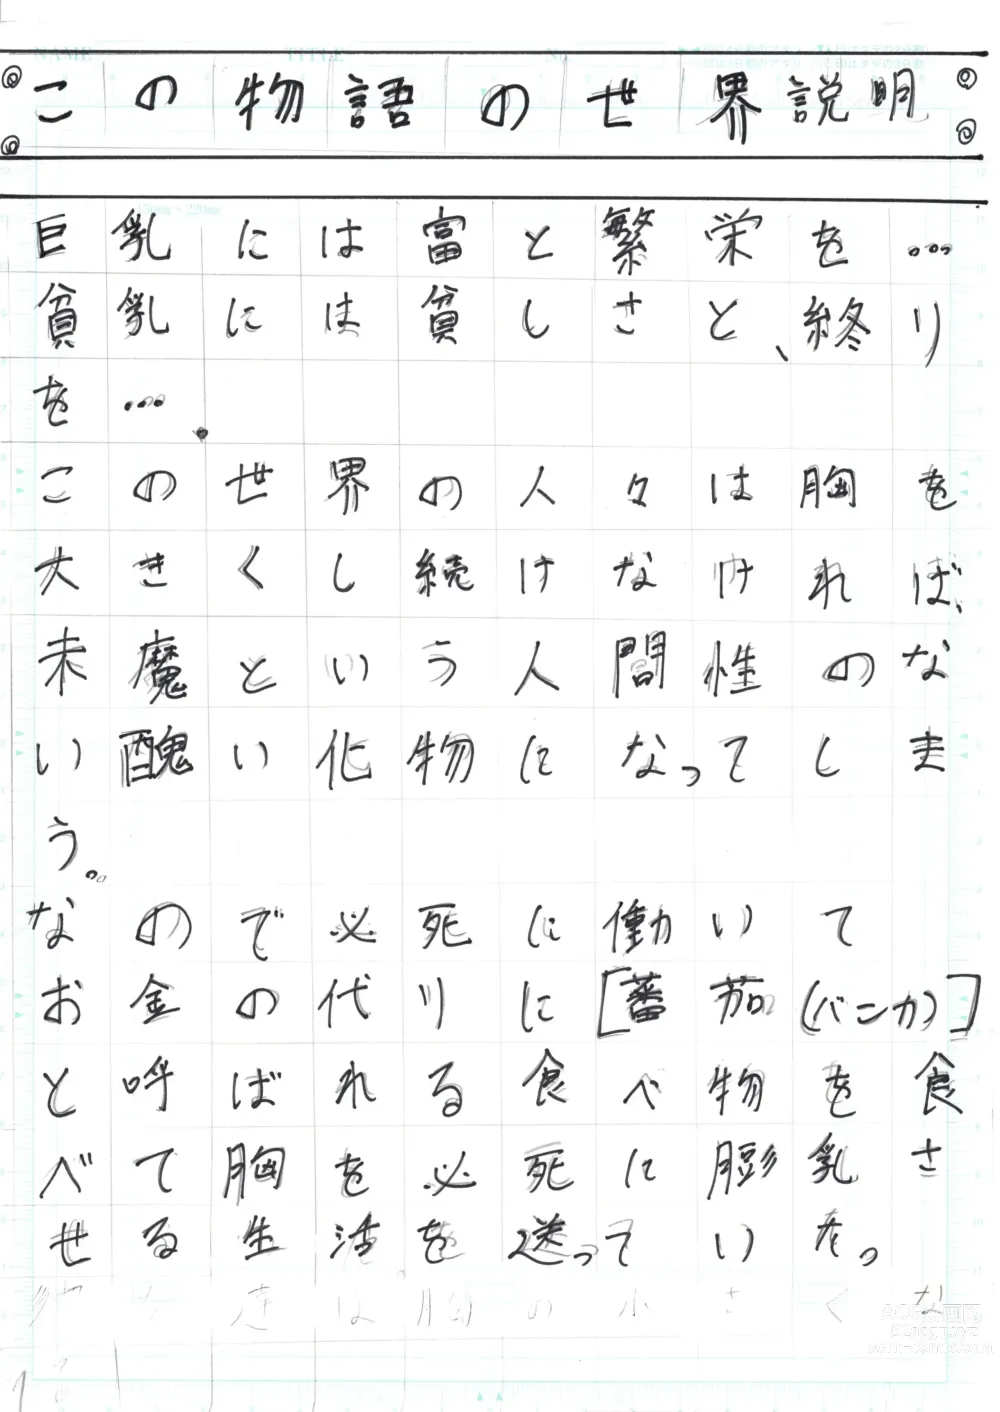 この物語の世界説明
巨乳には富と繁栄を…
貧乳には貧しさと、終り
を…。
この世界の人々は胸を
大きくし続けなければ、
未魔という人間性のな
い醜い化物になってしま
う。
なので必死に働いて
お金の代りに[蕃茄(バンカ)]
と呼ばれる食べ物を食
べて胸を必死に膨乳さ
せる生活を送っていた。
達は胸の小さくな
1